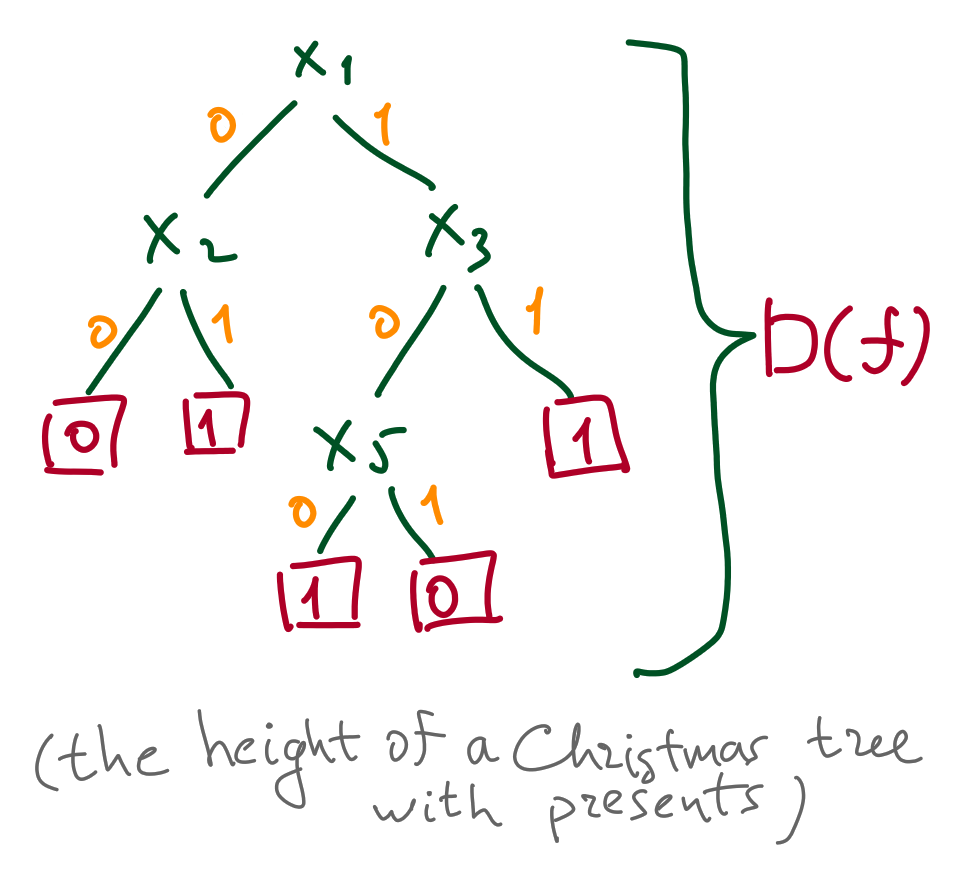 x1
0 1
x2 x3
0 1 0 1
D(f)
0 1 x5 1
0 1
1 0
(the height of a Christmas tree
with presents)